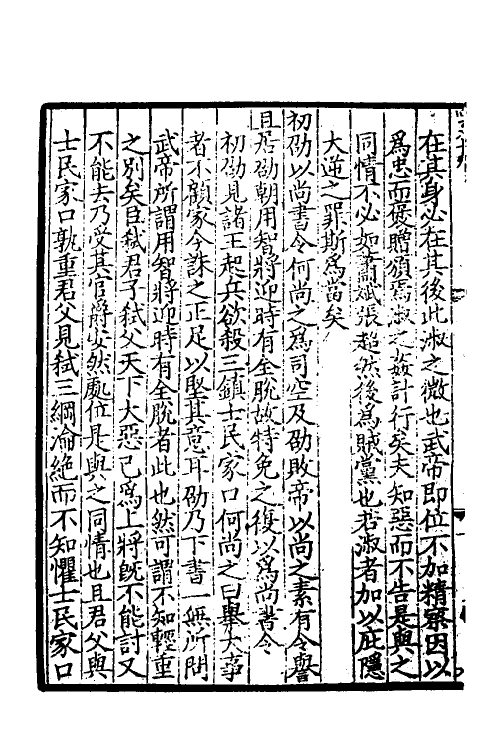 在其身必在其後此淑之微也武帝即位不加精察因以
爲忠而褒贈頒焉淑之姦計行矣夫知惡而不告是與之
同情不必如蕭斌張超然後爲賊黨也若淑者加以庇隱
大逆之罪斯爲當矣
初劭以尚書令何尚之爲司空及劭敗帝以尚之素有令譽
且居劭朝用智將迎時有全脫故特免之復以爲尚書令
初劭見諸王起兵欲殺三鎮士民家口何尚之曰舉大事
者不顧家今誅之正足以堅其意耳劭乃下書一無所問
武帝所謂用智將迎時有全脫者此也然可謂不知輕重
之別矣臣弑君子弑父天下大惡己爲上將旣不能討又
不能去乃受其官爵安然處位是與之同情也且君父與
士民家口孰重君父見弑三綱淪絕而不知懼士民家口